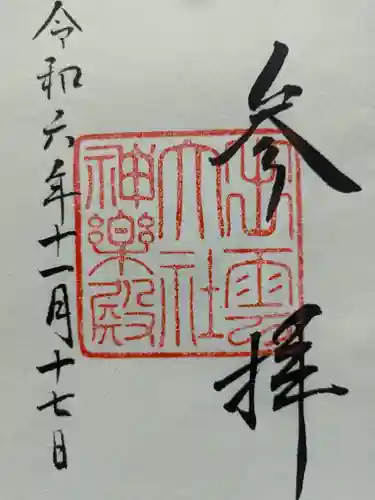 参拝
出雲
大社
神楽殿
令和六年十一月十七日